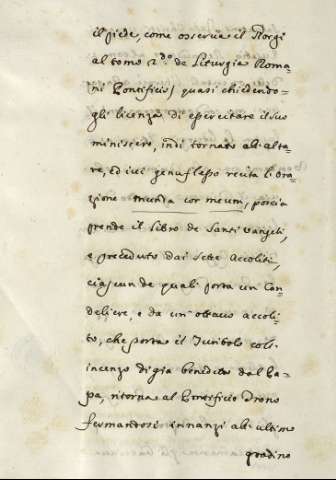 il piede, come osserva il Giorgi
al tomo 2.do de Liturgia Roma=
ni Pontificis, quasi chiedendo=
gli licenza di esercitare il suo
ministero, indi tornato all'alta=
re, ed ivi genuflesso recita l'Ora=
zione munda cor meum, poscia
prende il libro de Santi Vangeli,
e preceduto dai sette Accoliti,
ciascun de quali porta un Can=
deliere, e da un'ottavo accoli=
to, che porta il Turibolo coll'
incenzo di già benedetto dal Pa=
pa, ritorna al Pontificio Trono
fermandosi innanzi all'ultimo
gradino